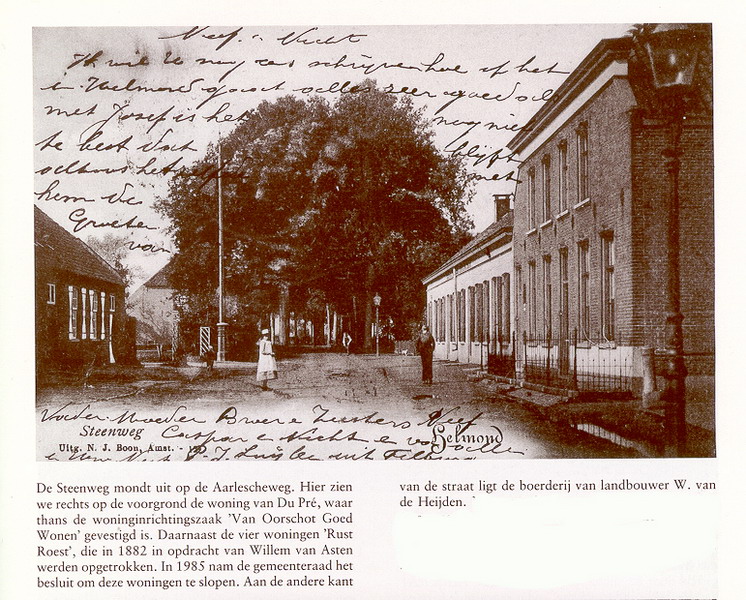 Neef. Nicht
Ik wil U nog eens schrijven hoe of het
in Helmond gaat alles zeer goed
met Josef is het nog niet
te best dat blijft
altoos het met
hem de
Groeten
van
Vader Moeder Broer e Zusters Neef
Steenweg Caspar e Nicht e alle
Helmond
Uitg. N. J. Boon, Amst. -
De Steenweg mondt uit op de Aarlescheweg. Hier zien
we rechts op de voorgrond de woning van Du Pré, waar
thans de woninginrichtingszaak 'Van Oorschot Goed
Wonen' gevestigd is. Daarnaast de vier woningen 'Rust
Roest', die in 1882 in opdracht van Willem van Asten
werden opgetrokken. In 1985 nam de gemeenteraad het
besluit om deze woningen te slopen. Aan de andere kant
van de straat ligt de boerderij van landbouwer W. van
de Heijden.